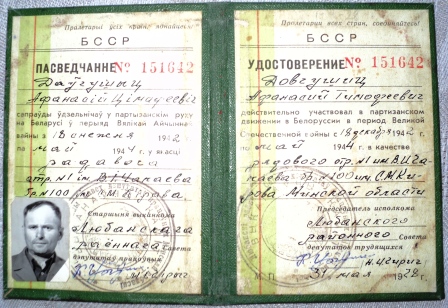 Пралетарыі ўсіх краін, яднайцеся!
БССР
ПАСВЕДЧАННЕ № 151642
Даўгушыц
Афанасій Цімафеевіч
сапраўды ўдзельнічаў у партызанскім руху
на Беларусі ў перыяд Вялікай Айчыннай
вайны з 18 снежня 1942
па май 1944 г. у якасці
радавога
атр. №1 ім. В.І. Чапаева
бр. №100 ім. С.М. Кірава
Старшыня выканкома
Любанскага
раённага Савета
дэпутатаў працоўных
Пролетарии всех стран, соединяйтесь!
БССР
УДОСТОВЕРЕНИЕ № 151642
Довгушиц
Афанасий Тимофеевич
действительно участвовал в партизанском
движении в Белоруссии в период Великой
Отечественной войны с 18 декабря 1942 г.
по май 1944 г. в качестве
рядового отр. №1 им. В.И. Ча
паева бр. №100 им. С.М. Ки
рова Минской области
Председатель исполкома
Любанского
районного Совета
депутатов трудящихся
М. П. 31 мая